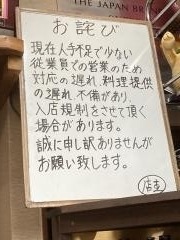 THE JAPAN BR
お詫び
現在人手不足で少ない
従業員での営業のため
対応の遅れ、料理提供
の遅れ 不備があり
入店規制をさせて頂く
場合があります。
誠に申し訳ありませんが
お願い致します。
店主